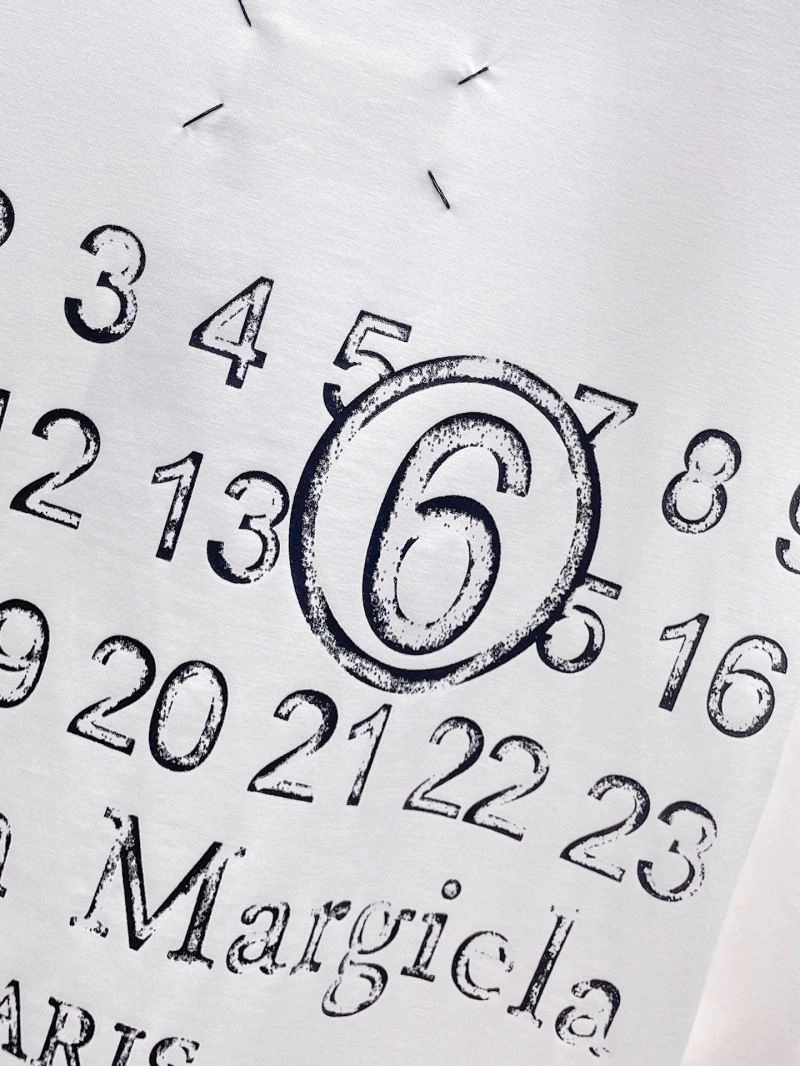 3 4 5 6 7 8 9
12 13 5 16
9 20 21 22 23
Margiela
ARIS